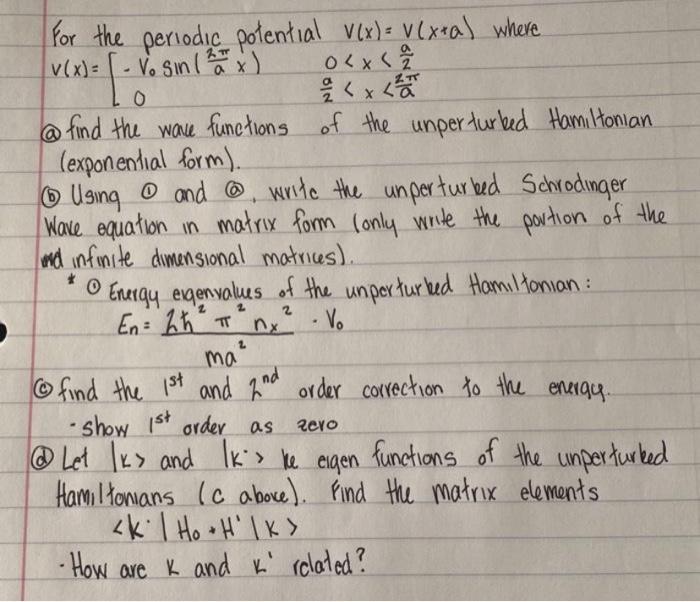 For the periodic potential V(x) = V(x+a) where
V(x) = [ - V₀ sin(2π/a x)    0 < x < a/2
0    a/2 < x < 2π/a
ⓐ find the wave functions of the unperturbed Hamiltonian
(exponential form).
ⓑ Using ① and ⓐ, write the unperturbed Schrodinger
Wave equation in matrix form (only write the portion of the
infinite dimensional matrices).
* ① Energy eigenvalues of the unperturbed Hamiltonian:
Eₙ = 2ħ² π² nₓ² / ma² · V₀
ⓒ find the 1st and 2nd order correction to the energy.
- show 1st order as zero
ⓓ Let |k> and |k'> be eigen functions of the unperturbed
Hamiltonians (c above). Find the matrix elements
<k'| H₀ + H' |k>
- How are k and k' related?